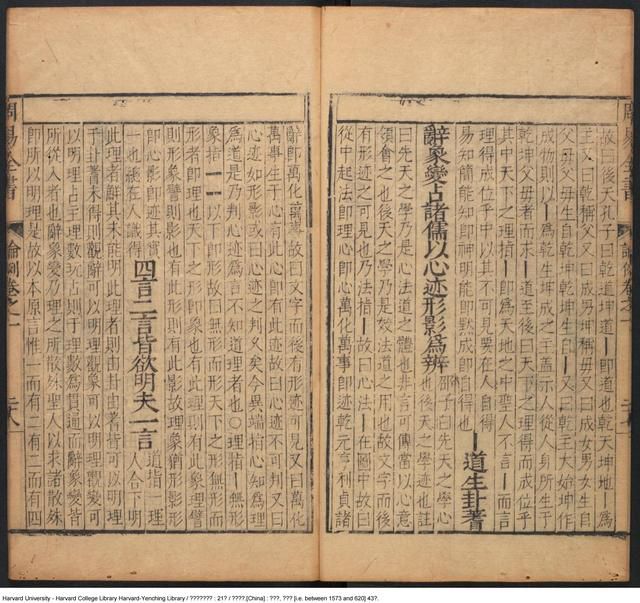 故一後天孔子曰乾道坤道一即道也乾天坤地一爲
主又曰乾稱父又一成男坤稱毋又曰成女男女生自
父毋父毋生自乾坤乾坤生自一又曰乾主大始坤作
成物則以一爲乾生坤成之主蓋示人從人身所生于
乾坤父毋者而求一道至後曰天下之理得而成位乎
其中天下之理指一即爲天地之中聖人不言一而言
理得成位乎中以其不可見要在人自得
易知簡能知即神明能即默成即自得也
一道生卦蓍
辭象變占諸儒以心迹形影爲辨
邵子曰先天之學心
也後天之學迹也註
曰先天之學乃是心法道之體也非言可傳當以心意
領會之也後天之學乃是效法道之用也故文字而後
有形迹之可見也乃法指一故曰心法一在圖中故曰
從中起法即理心即心萬化萬事即迹乾元亨利貞諸
辭即萬化萬事故曰文字而後有形迹可見又曰萬化
萬事生于心有此心即有此迹故曰心迹不可判又曰
心迹如形影或曰心迹之判乂矣今異端指心知爲理
爲道是乃判心迹爲言不知道理者也○理指一無形
象指一一以下即形故曰無形而形天下之形無形而
形者即理也天下之形即象也有此理則有此象理譬
則形象譬則影也有此形則有此影故理象猶形影形
即心影即迹其實
一也總在人識得
四言二言皆欲明夫一言
道指一理
人合下明
此理者鮮其未能明此理者則由卦由蓍皆可以明理
于卦蓍未得則觀辭可以明理觀象可以明理觀變可
以明理占主理數玩占則于理數爲貫通而辭象變皆
所從入者也辭象變乃理之所散殊聖人以求諸散殊
即所以明理是故以本原言惟一而有二有二而有四
周易全書
論例卷之一
二十八
Harvard University - Harvard College Library Harvard-Yenching Library / ??????? : 21? / ????.[China] : ???, ??? [i.e. between 1573 and 620] 43?.